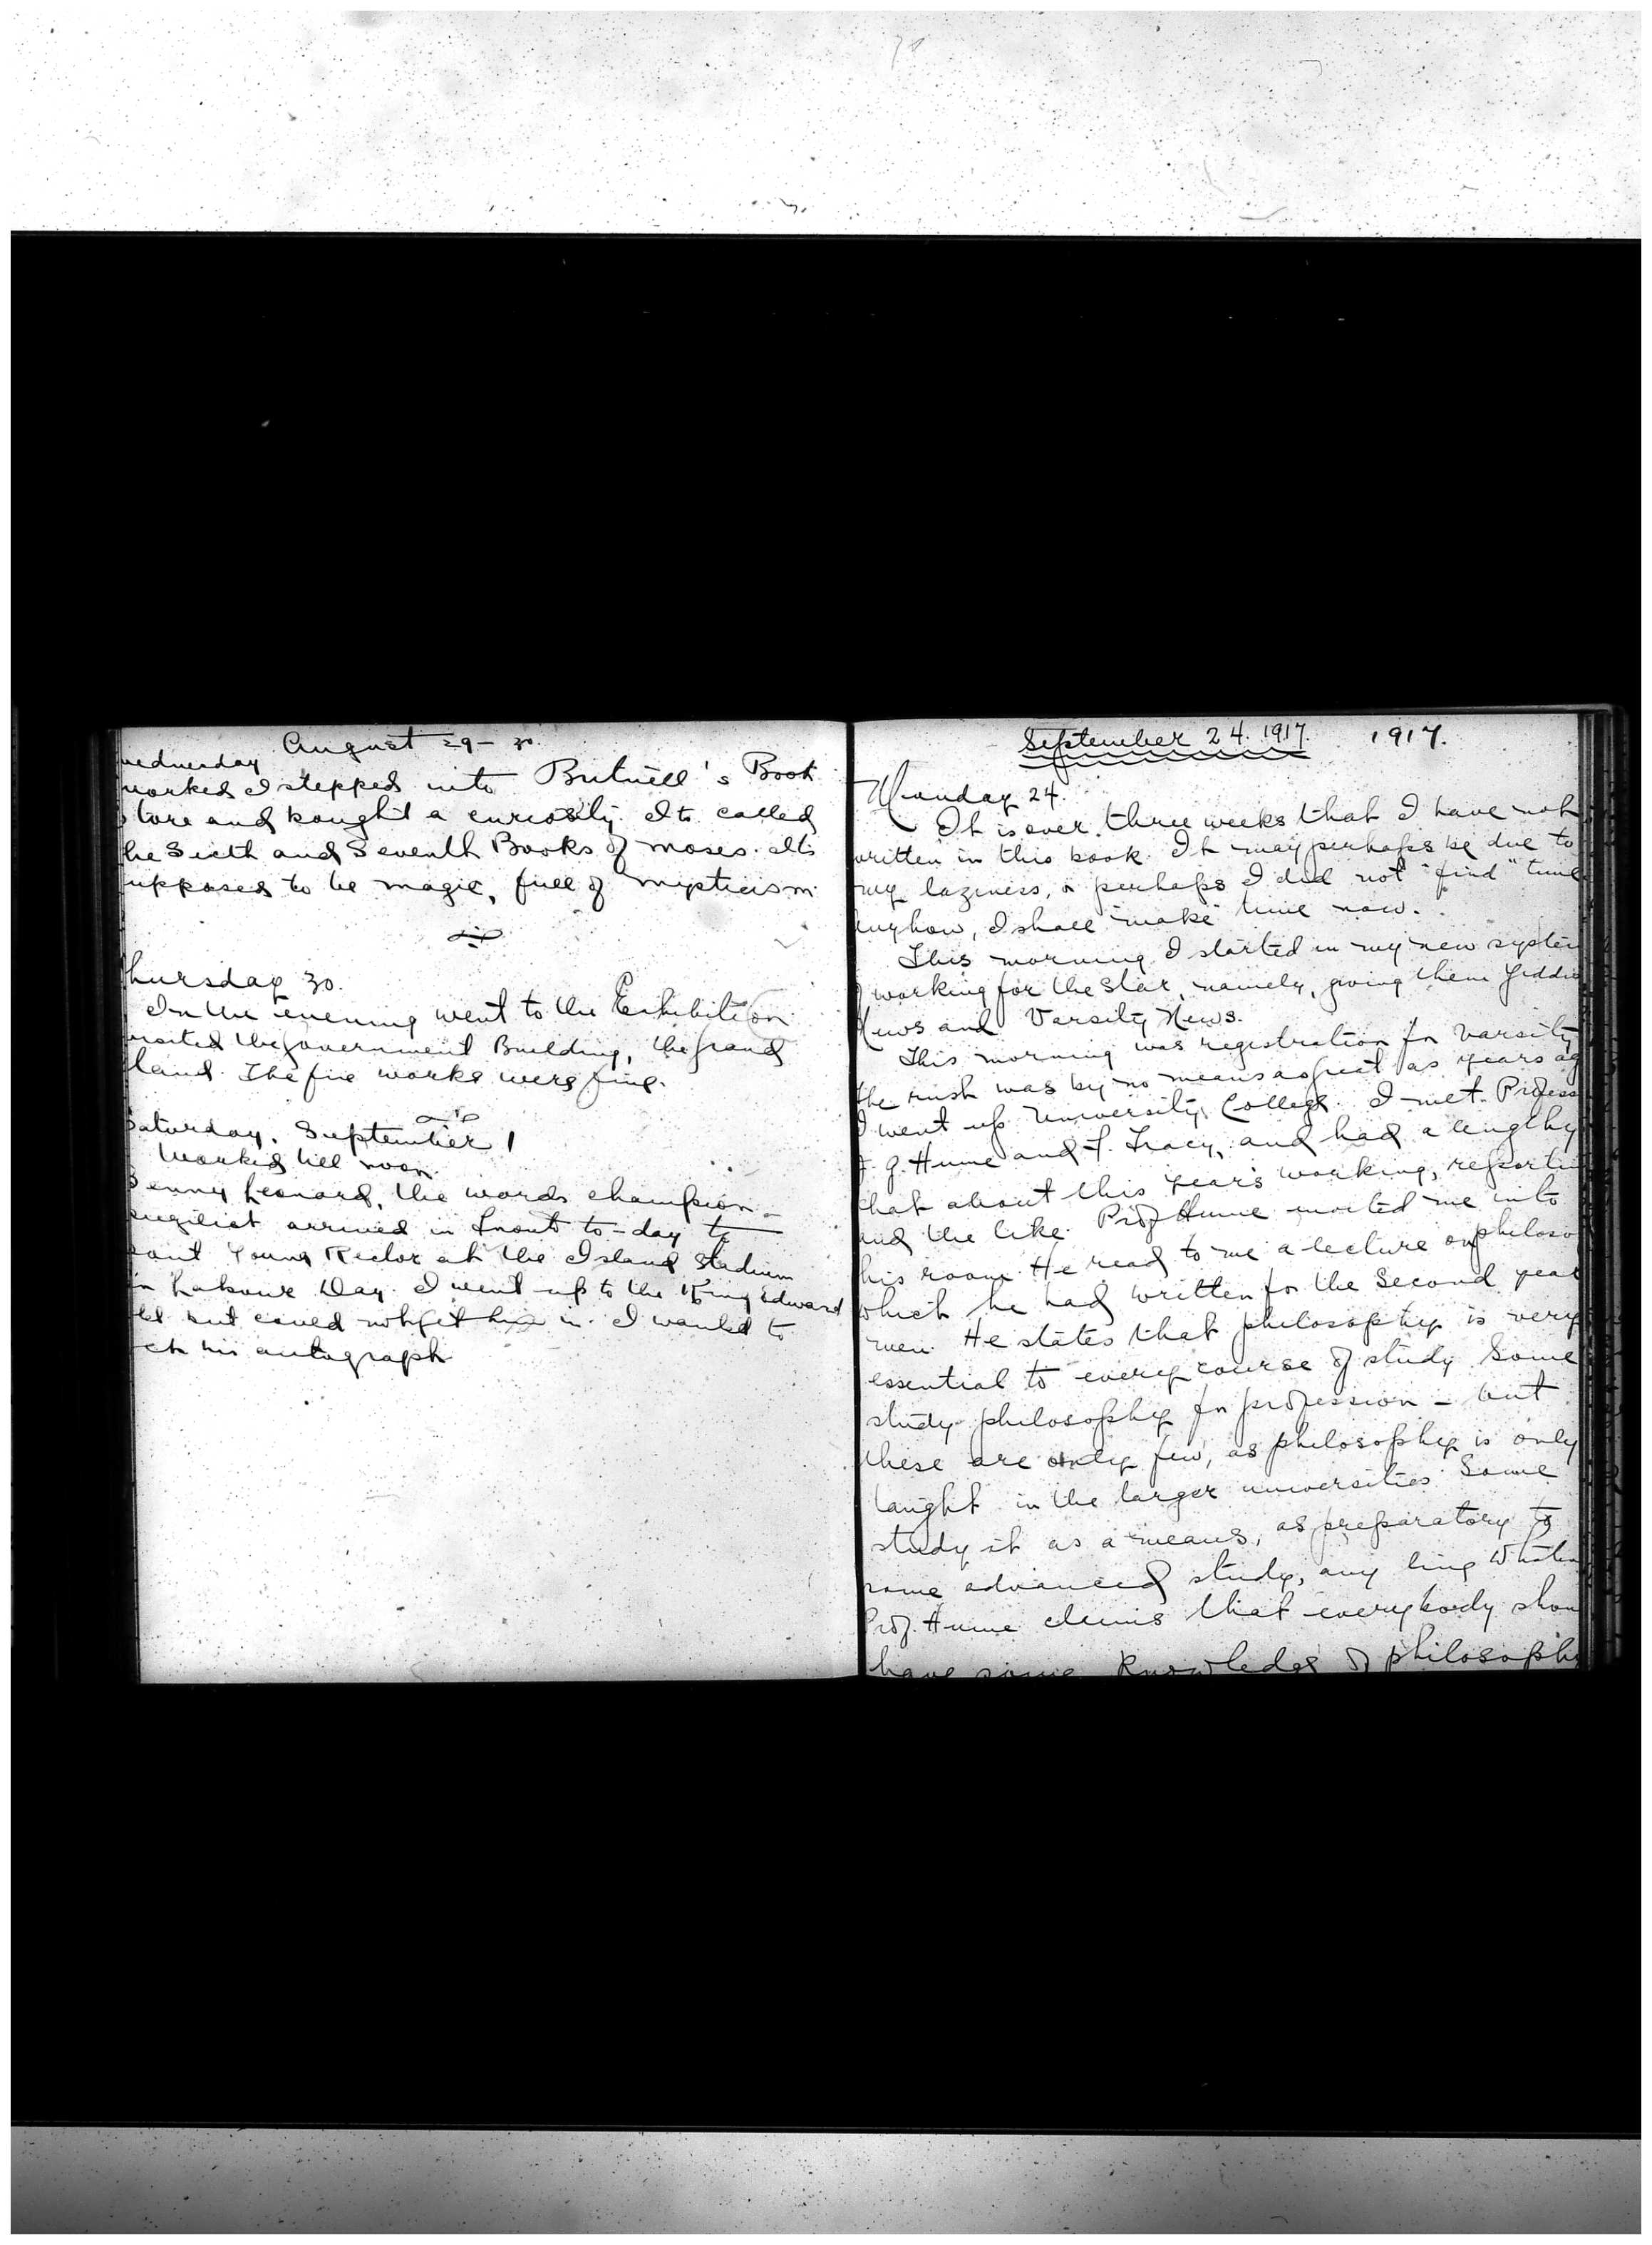 August 29-30.
wednesday
worked I stepped into Britnell's Book
store and bought a curiosity. Its called
he Sixth and Seventh Books of Moses. Its
upposed to be magic, full of mysticism.
hursday 30.
In the evening went to the Exhibition
visited the government Building, the grand
stand. The fire works were fine.
Saturday, September 1
Worked till noon.
Benny Leonard, the words champion
pugilist arrived in Tront to-day to
bout Young Rector at the Island Stadium
on Labour Day. I went up to the King Edward
tel but could not get him in. I wanted to
his autograph
September 24. 1917. 1917.
Monday 24.
It is over three weeks that I have not
written in this book. It may perhaps be due to
my laziness, or perhaps I did not "find" time
Anyhow, I shall "make" time now.
This morning I started in my new system
of working for the Star, namely, giving them Yiddis
News and Varsity News.
This morning was registration for Varsity
the rush was by no means as great as years ag
I went up University College. I met Profess
J. G. Hume and F. Tracy, and had a lengthy
chat about this year's working, reportin
and the like. Prof Hume invited me into
his room. He read to me a lecture on philoso
which he had written for the Second year
men. He states that philosophy is very
essential to every course of study. Some
study philosophy for profession - but
these are only few, as philosophy is only
taught in the larger universities. Some
study it as a means, as preparatory to
some advanced study, any ling Whate
Prof. Hume claims that everybody shou
have some knowledge of philosophy